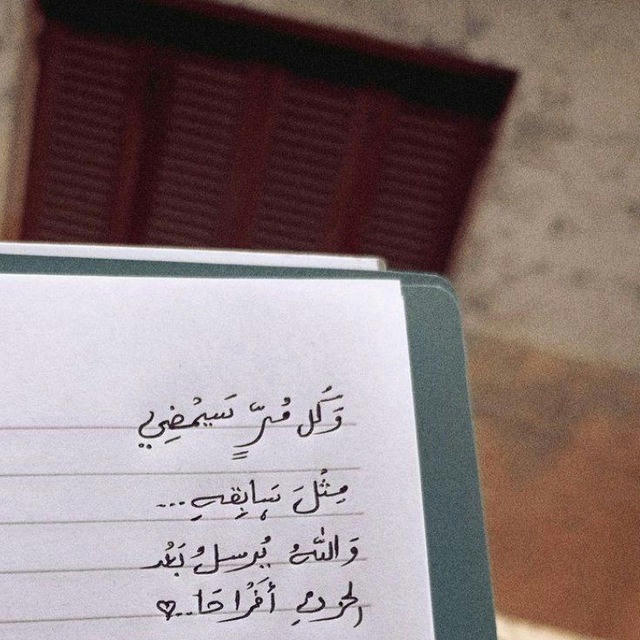 وَكُل مُرّ ٍ سَيمْضِي
مِثْلَ سَابِقهِ...
وَاللهُ يُرسلُ بَعْد
الحزنِ أَفْرَاحَا..♡